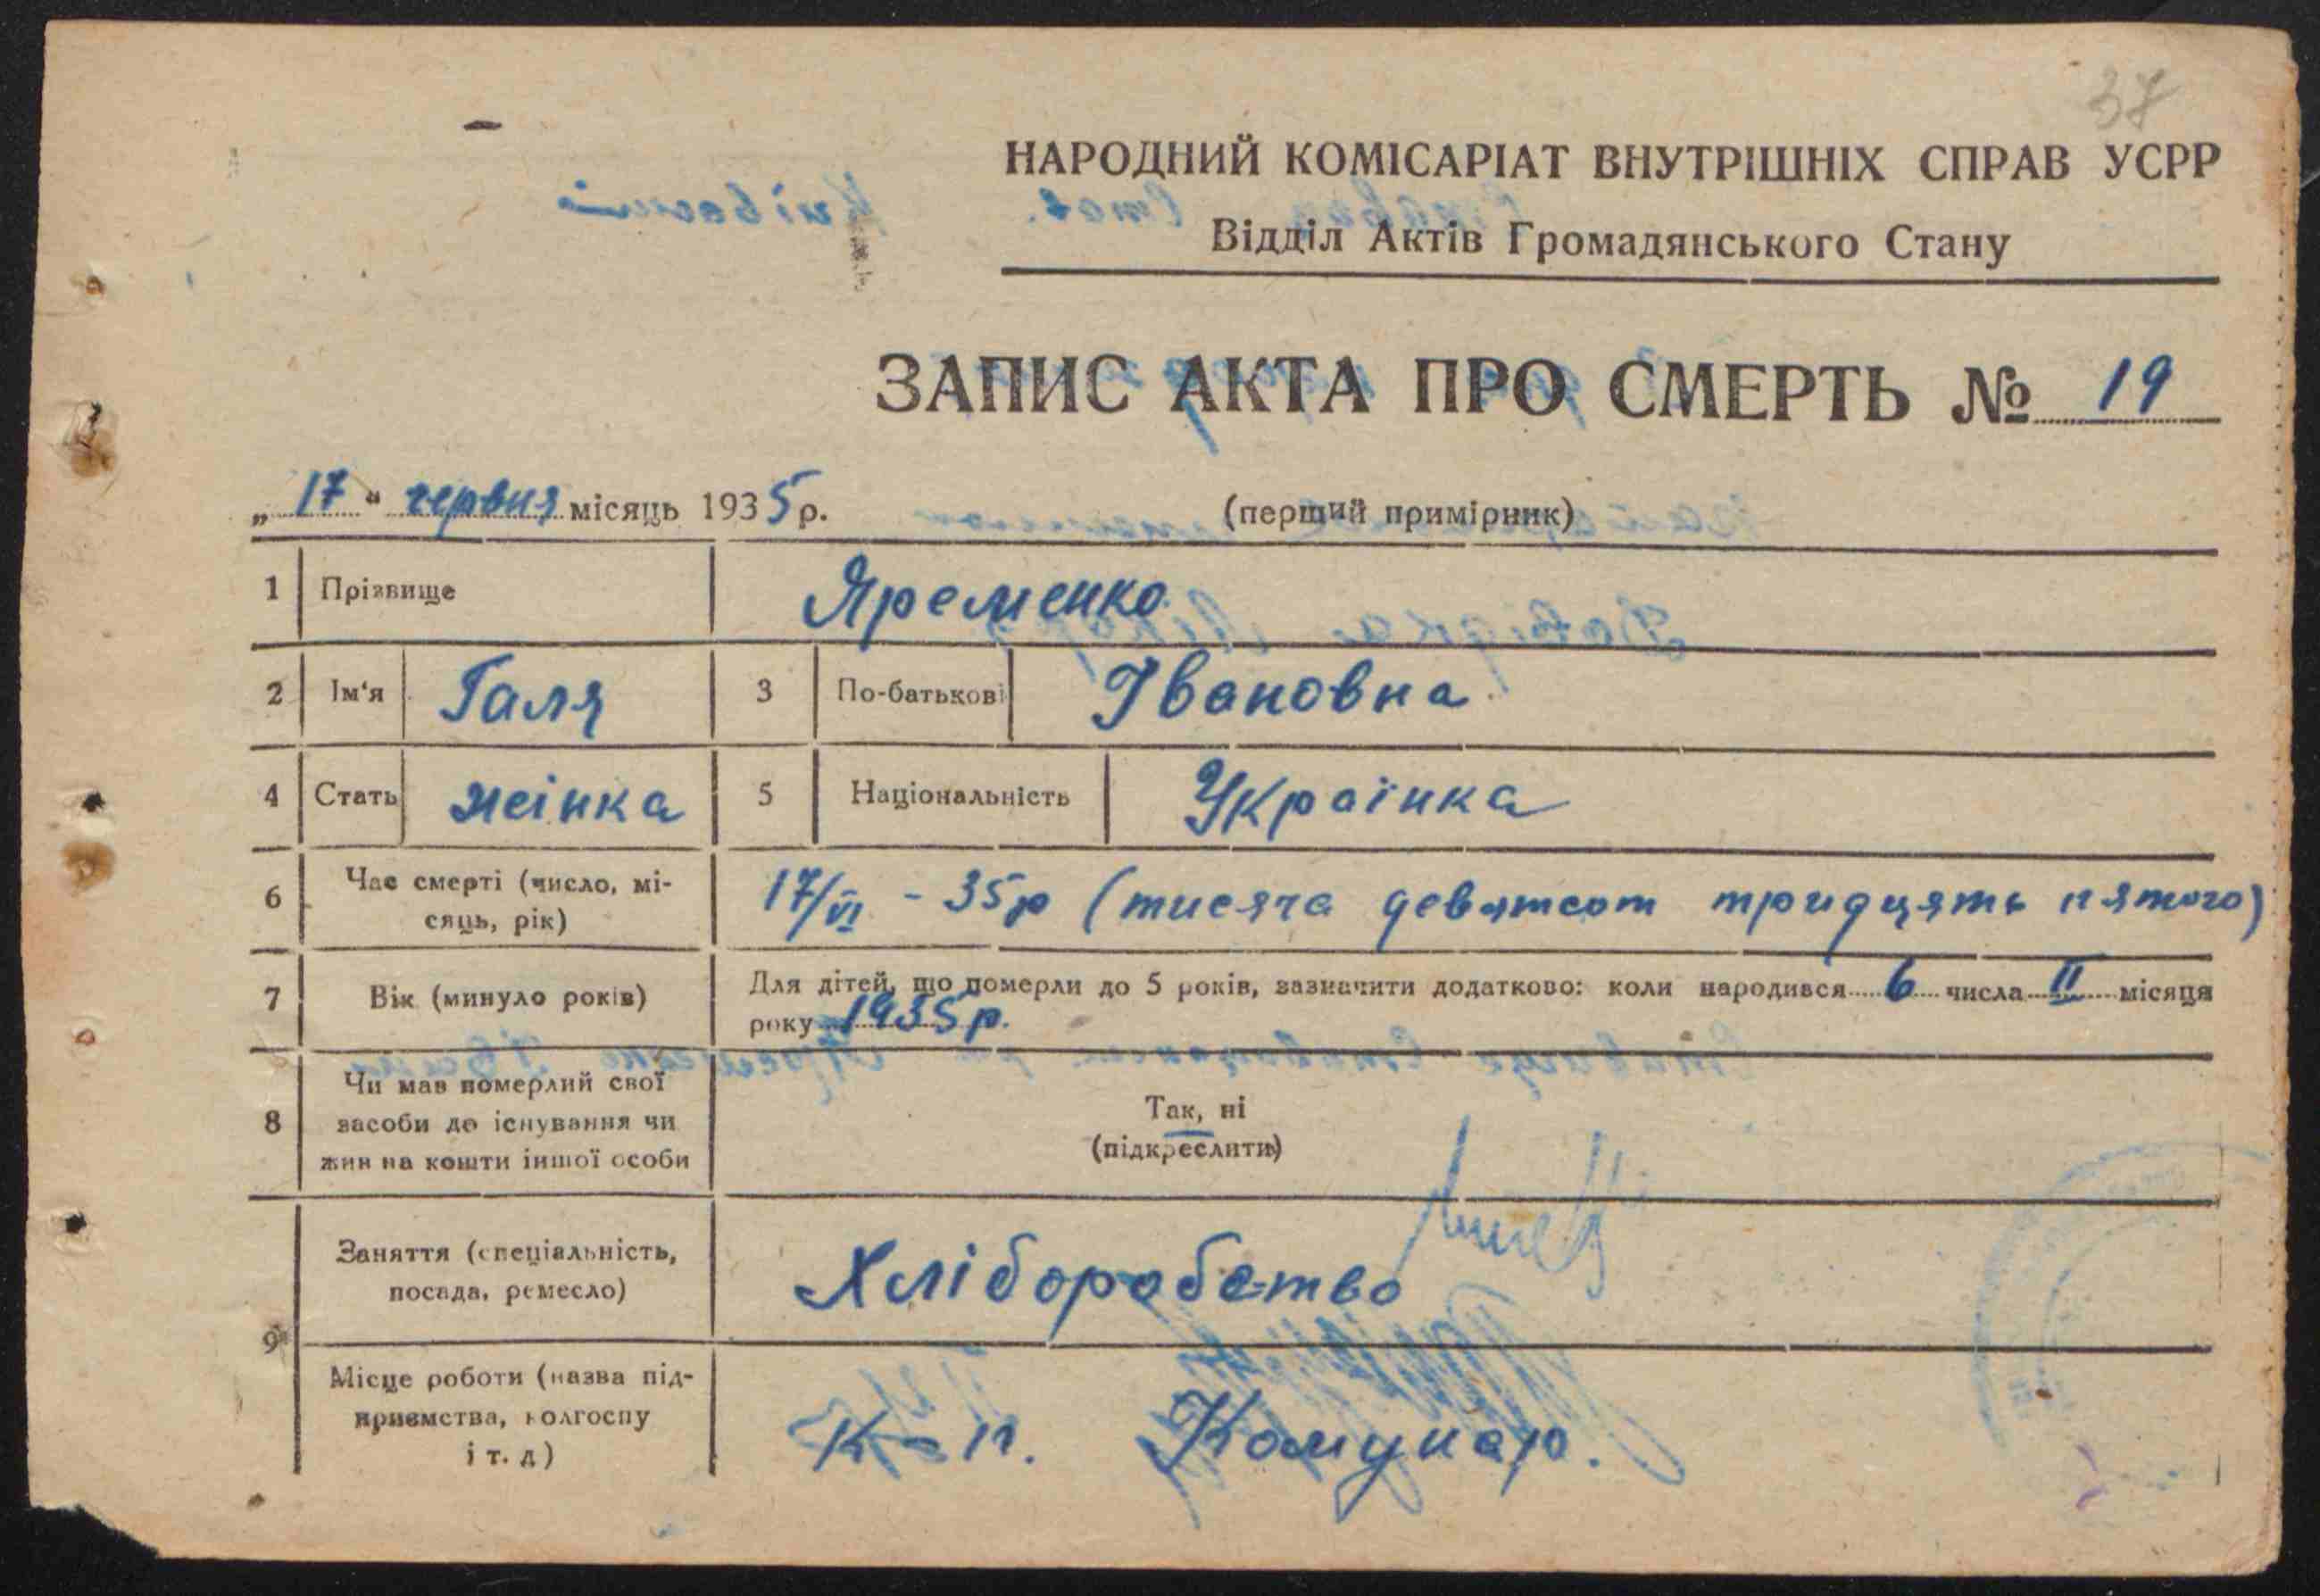 37
НАРОДНИЙ КОМІСАРІАТ ВНУТРІШНІХ СПРАВ УСРР
Відділ Актів Громадянського Стану
ЗАПИС АКТА ПРО СМЕРТЬ № 19
„ 17 “ червня місяць 1935 р. (перший примірник)
1 Прізвище Яременко
2 Ім‘я Галя 3 По-батькові Івановна
4 Стать жінка 5 Національність Українка
6 Час смерті (число, мі-
сяць, рік) 17/VI - 35 р (тисяча девятсот тридцять пятого)
7 Вік (минуло років) Для дітей, що померли до 5 років, зазначити додатково: коли народився 6 числа II місяця
року 1935 р.
8 Чи мав померлий свої
засоби до існування чи
жив на кошти іншої особи
Так, ні
(підкреслити)
9 Заняття (спеціальність,
посада, ремесло) Хліборобство
Місце роботи (назва під-
приємства, колгоспу
і т. д) К-п. Комунар.